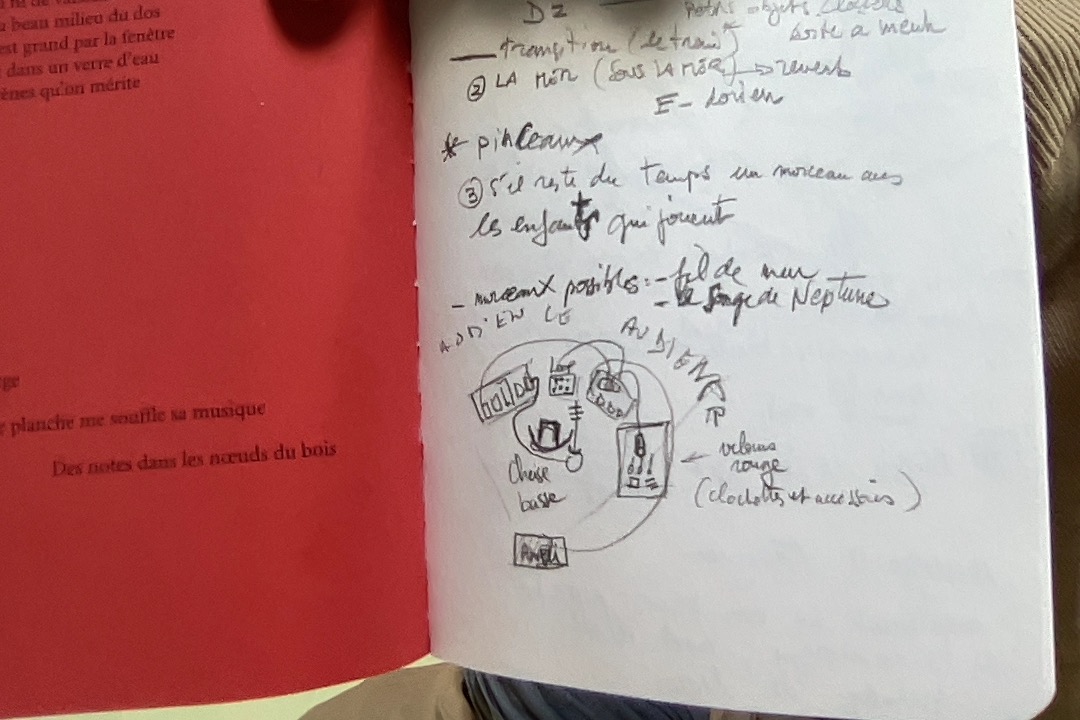 a beau milieu du dos
est grand par la fenêtre
dans un verre d'eau
qu'on mérite
planche me souffle sa musique
Des notes dans les nœuds du bois
D2
petits objets
transition (le train)
② LA MER (SOUS LA MER) →
E - dorien
* pinceaux
③ S'il reste du temps un morceau avec
les enfants qui jouent
- morceaux possibles : - fil de mer
- le songe de Neptune
AUDIENCE
AUDIENCE
Loop
Chaise
basse
velours
rouge
(clochettes et accessoires)
AMPLI